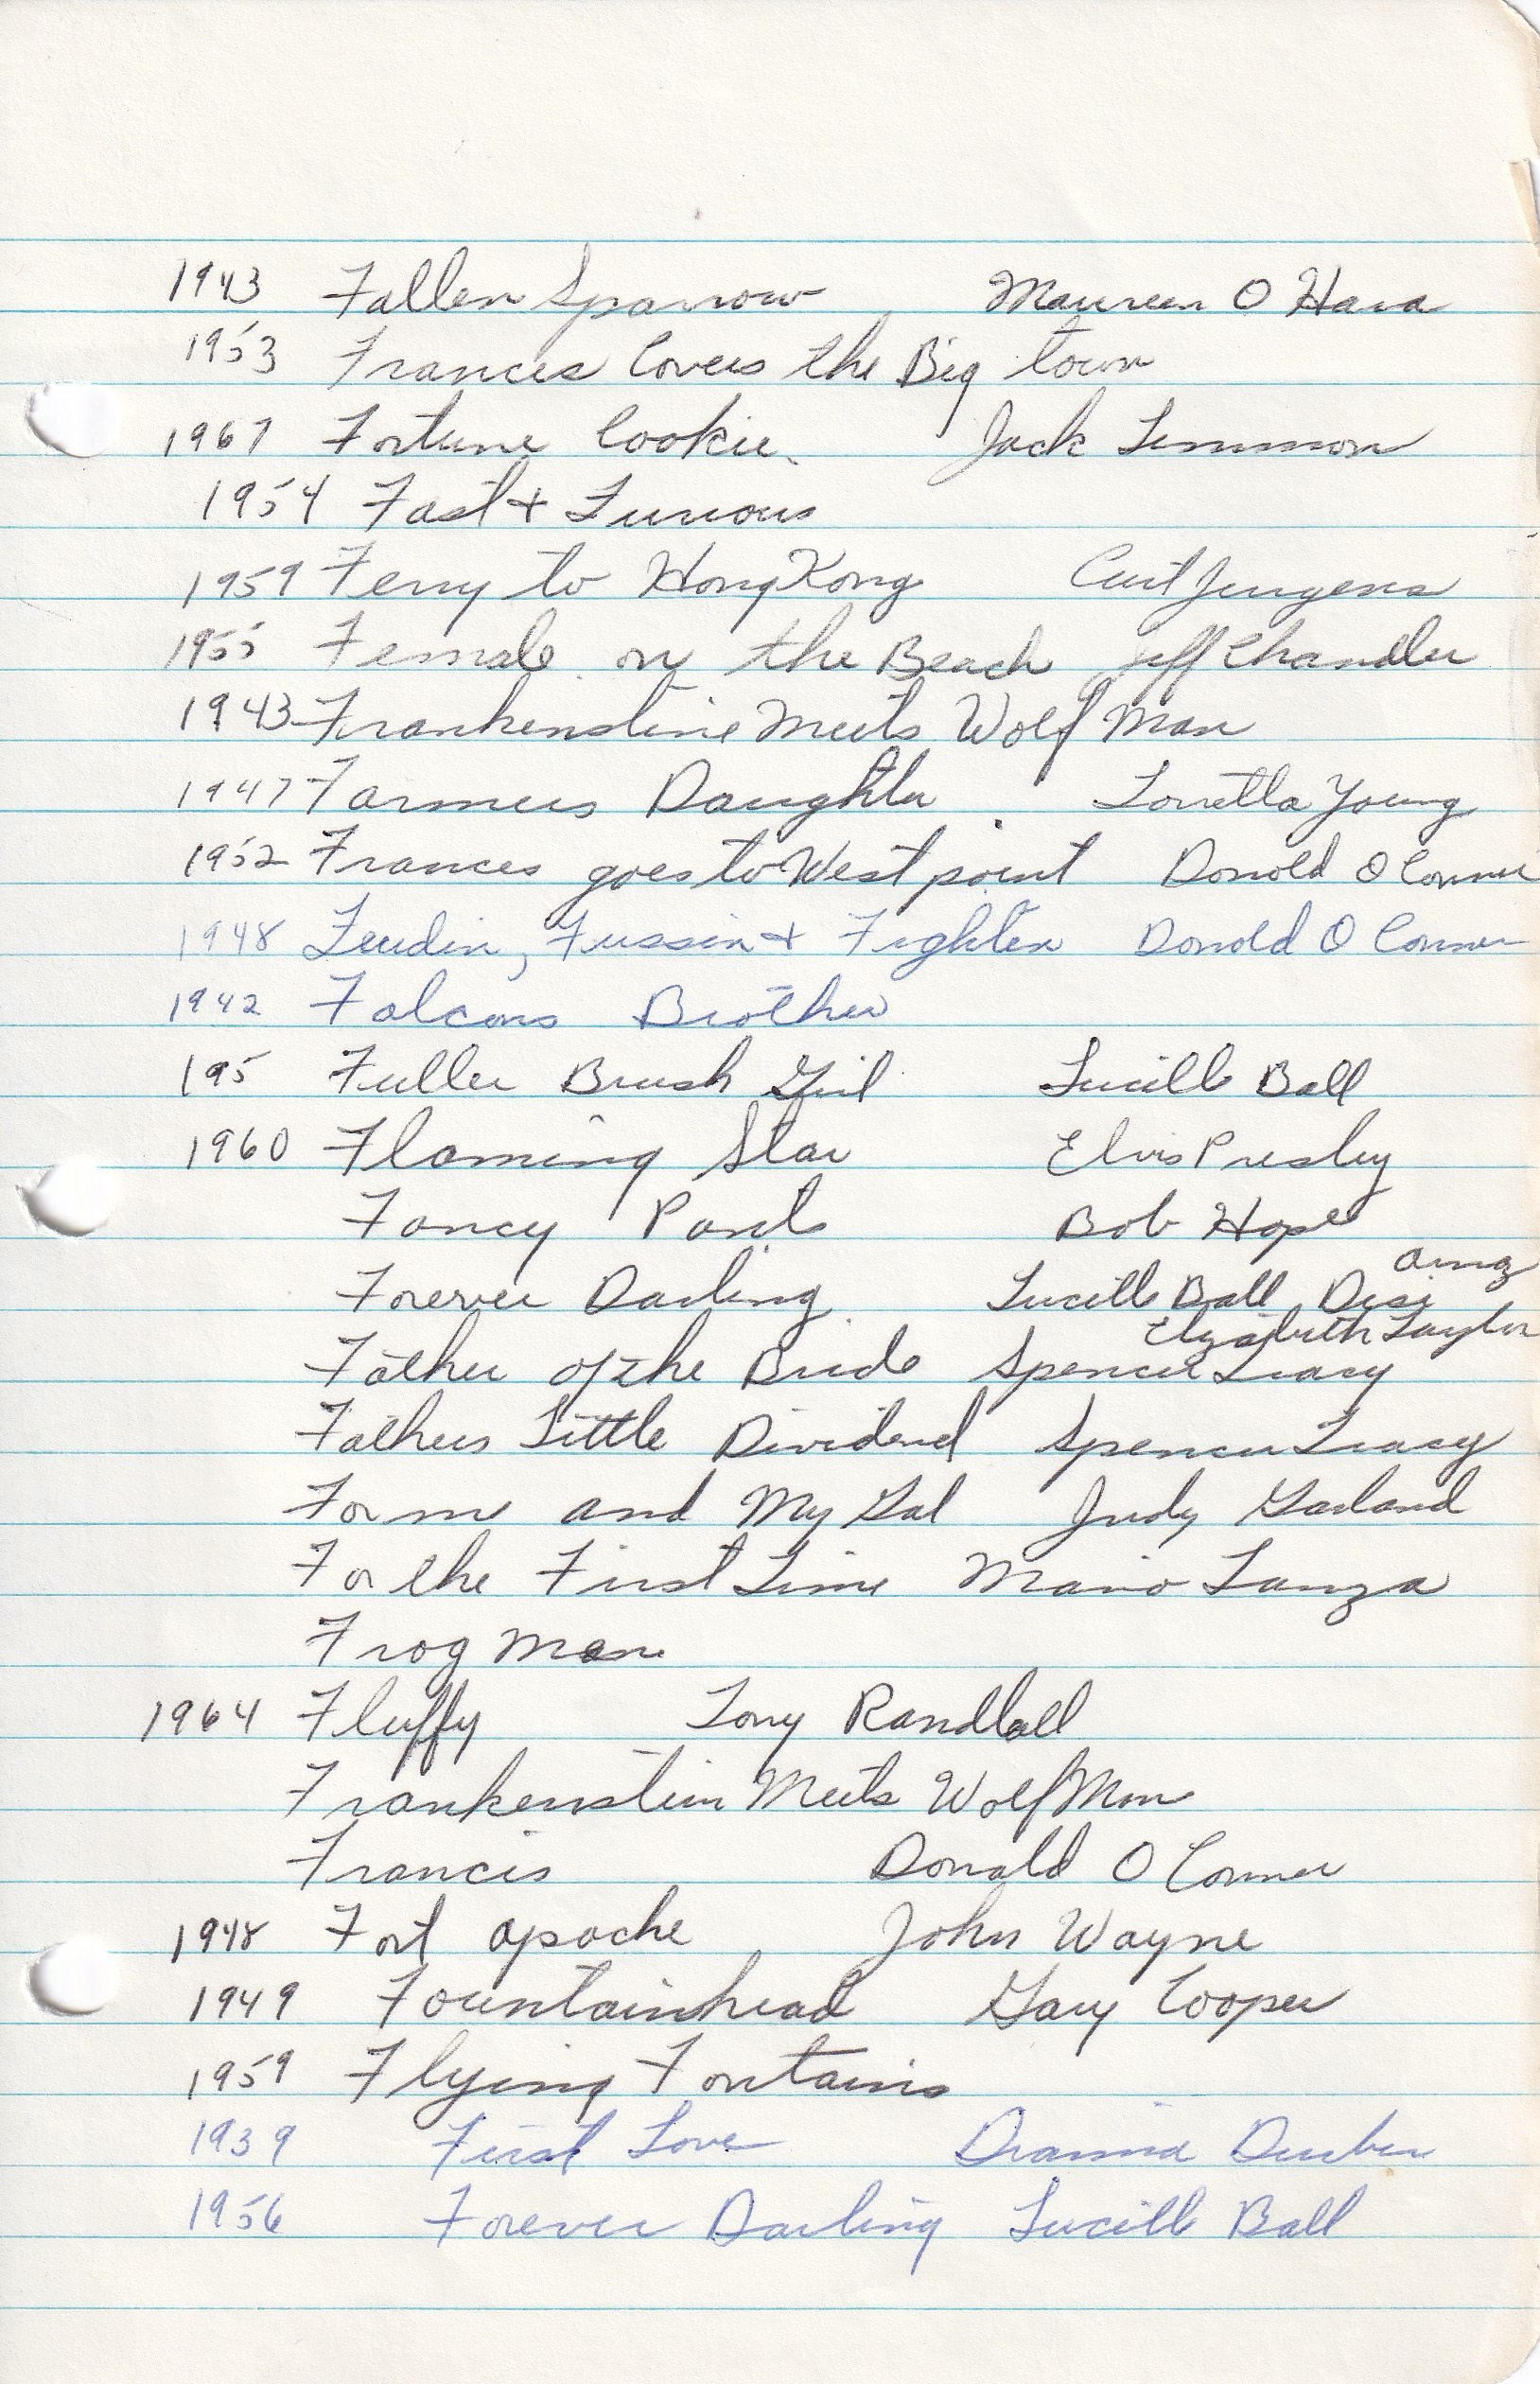 1943 Fallen Sparrow Maureen O Hara
1953 Frances Covers the Big town
1967 Fortune Cookie Jack Lemmon
1954 Fast + Furious
1959 Ferry to Hong Kong Curt Jurgens
1955 Female on the Beach Jeff Chandler
1943 Frankenstine Meets Wolf Man
1947 Farmers Daughter Loretta Young
1952 Frances goes to West point Donald O Conner
1948 Feudin, Fussin + Fighten Donold O Conner
1942 Falcons Brother
195 Fuller Brush Girl Lucille Ball
1960 Flaming Star Elvis Presley
Fancy Pants Bob Hope
Forever Darling Lucille Ball Desi Arnaz
Father of the Bride Spencer Tracy Elizabeth Taylor
Fathers Little Dividend Spencer Tracy
For me and My Gal Judy Garland
For the First Time Mario Lanza
Frog man
1964 Fluffy Tony Randball
Frankenstein Meets Wolf Man
Francis Donald O Conner
1948 Fort apache John Wayne
1949 Fountainhead Gary Cooper
1959 Flying Fontains
1939 First Love Deanna Durben
1956 Forever Darling Lucille Ball